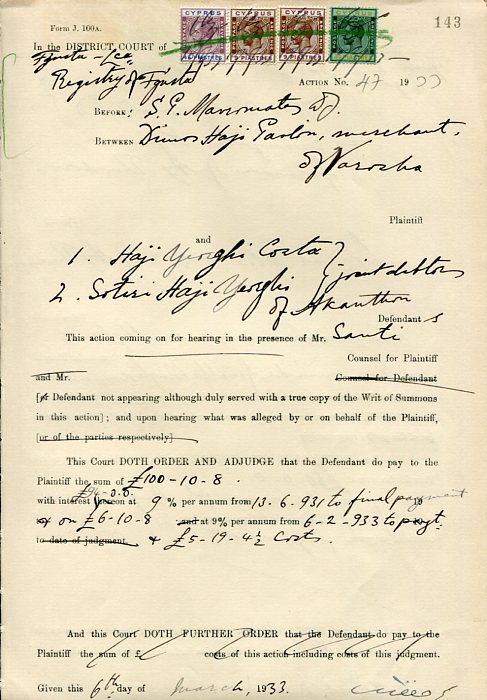 Form J. 100A.
143
CYPRUS CYPRUS CYPRUS
PIASTRES 9 PIASTRES 9 PIASTRES
In the DISTRICT COURT of
Registry of F/gusta
ACTION No. 47 1933
BEFORE: S. P. DJ.
BETWEEN Dimos Haji Pavlou, merchant,
of Varosha
Plaintiff
and
1. Haji Yeorghi Costa } joint debtors
2. Sotiri Haji Yeorghi of Akanthou
Defendants
This action coming on for hearing in the presence of Mr. Santi
Counsel for Plaintiff
and Mr. Counsel for Defendant
Defendant not appearing although duly served with a true copy of the Writ of Summons
in this action]; and upon hearing what was alleged by or on behalf of the Plaintiff,
[or of the parties respectively]
This Court DOTH ORDER AND ADJUDGE that the Defendant do pay to the
Plaintiff the sum of £100-10-8.
£94-0.0.
with interest thereon at 9 % per annum from 13.6.931 to final payment 19
on £6-10-8 and at 9% per annum from 6-2-933 to paygt.
to date of judgment. & £5-19-4½ costs.
And this Court DOTH FURTHER ORDER that the Defendant do pay to the
Plaintiff the sum of £ costs of this action including costs of this judgment.
Given this 6th day of March, 1933.